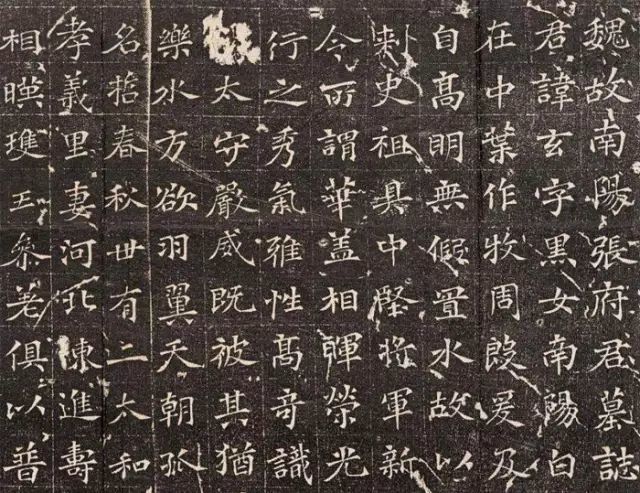 魏故南陽張府君墓誌
君諱玄字黑女南陽白
在中葉作牧周殷爰及
自高明無假置水故以
刺史祖具中堅將軍新
令所謂華蓋相暉榮光
行之秀氣雅性高奇識
太守嚴威既被其猶
樂水方欲羽翼天朝孤
名哲春秋世有二太和
孝義里妻河北陳進壽
相暎瓊玉參差俱以普